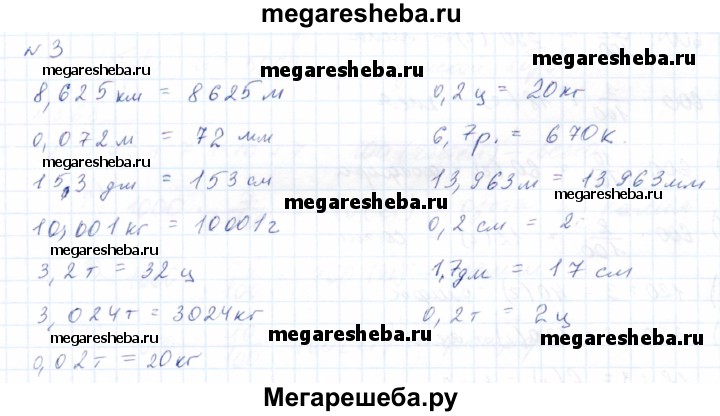 megaresheba.ru
№ 3
megaresheba.ru
megaresheba.ru
8,625 км = 8625 м
0,2 ц = 20 кг
megaresheba.ru
0,072 м = 72 мм
6,7 р. = 670 к.
megaresheba.ru
15,3 дм = 153 см
13,963 м = 13,963 мм
megaresheba.ru
megaresheba.ru
10,001 кг = 10001 г
0,2 см = 2
megaresheba.ru
3,2 т = 32 ц
1,7 дм = 17 см
3,024 т = 3024 кг
0,2 т = 2 ц
megaresheba.ru
megaresheba.ru
megaresheba.ru
0,02 т = 20 кг
Мегарешеба.ру